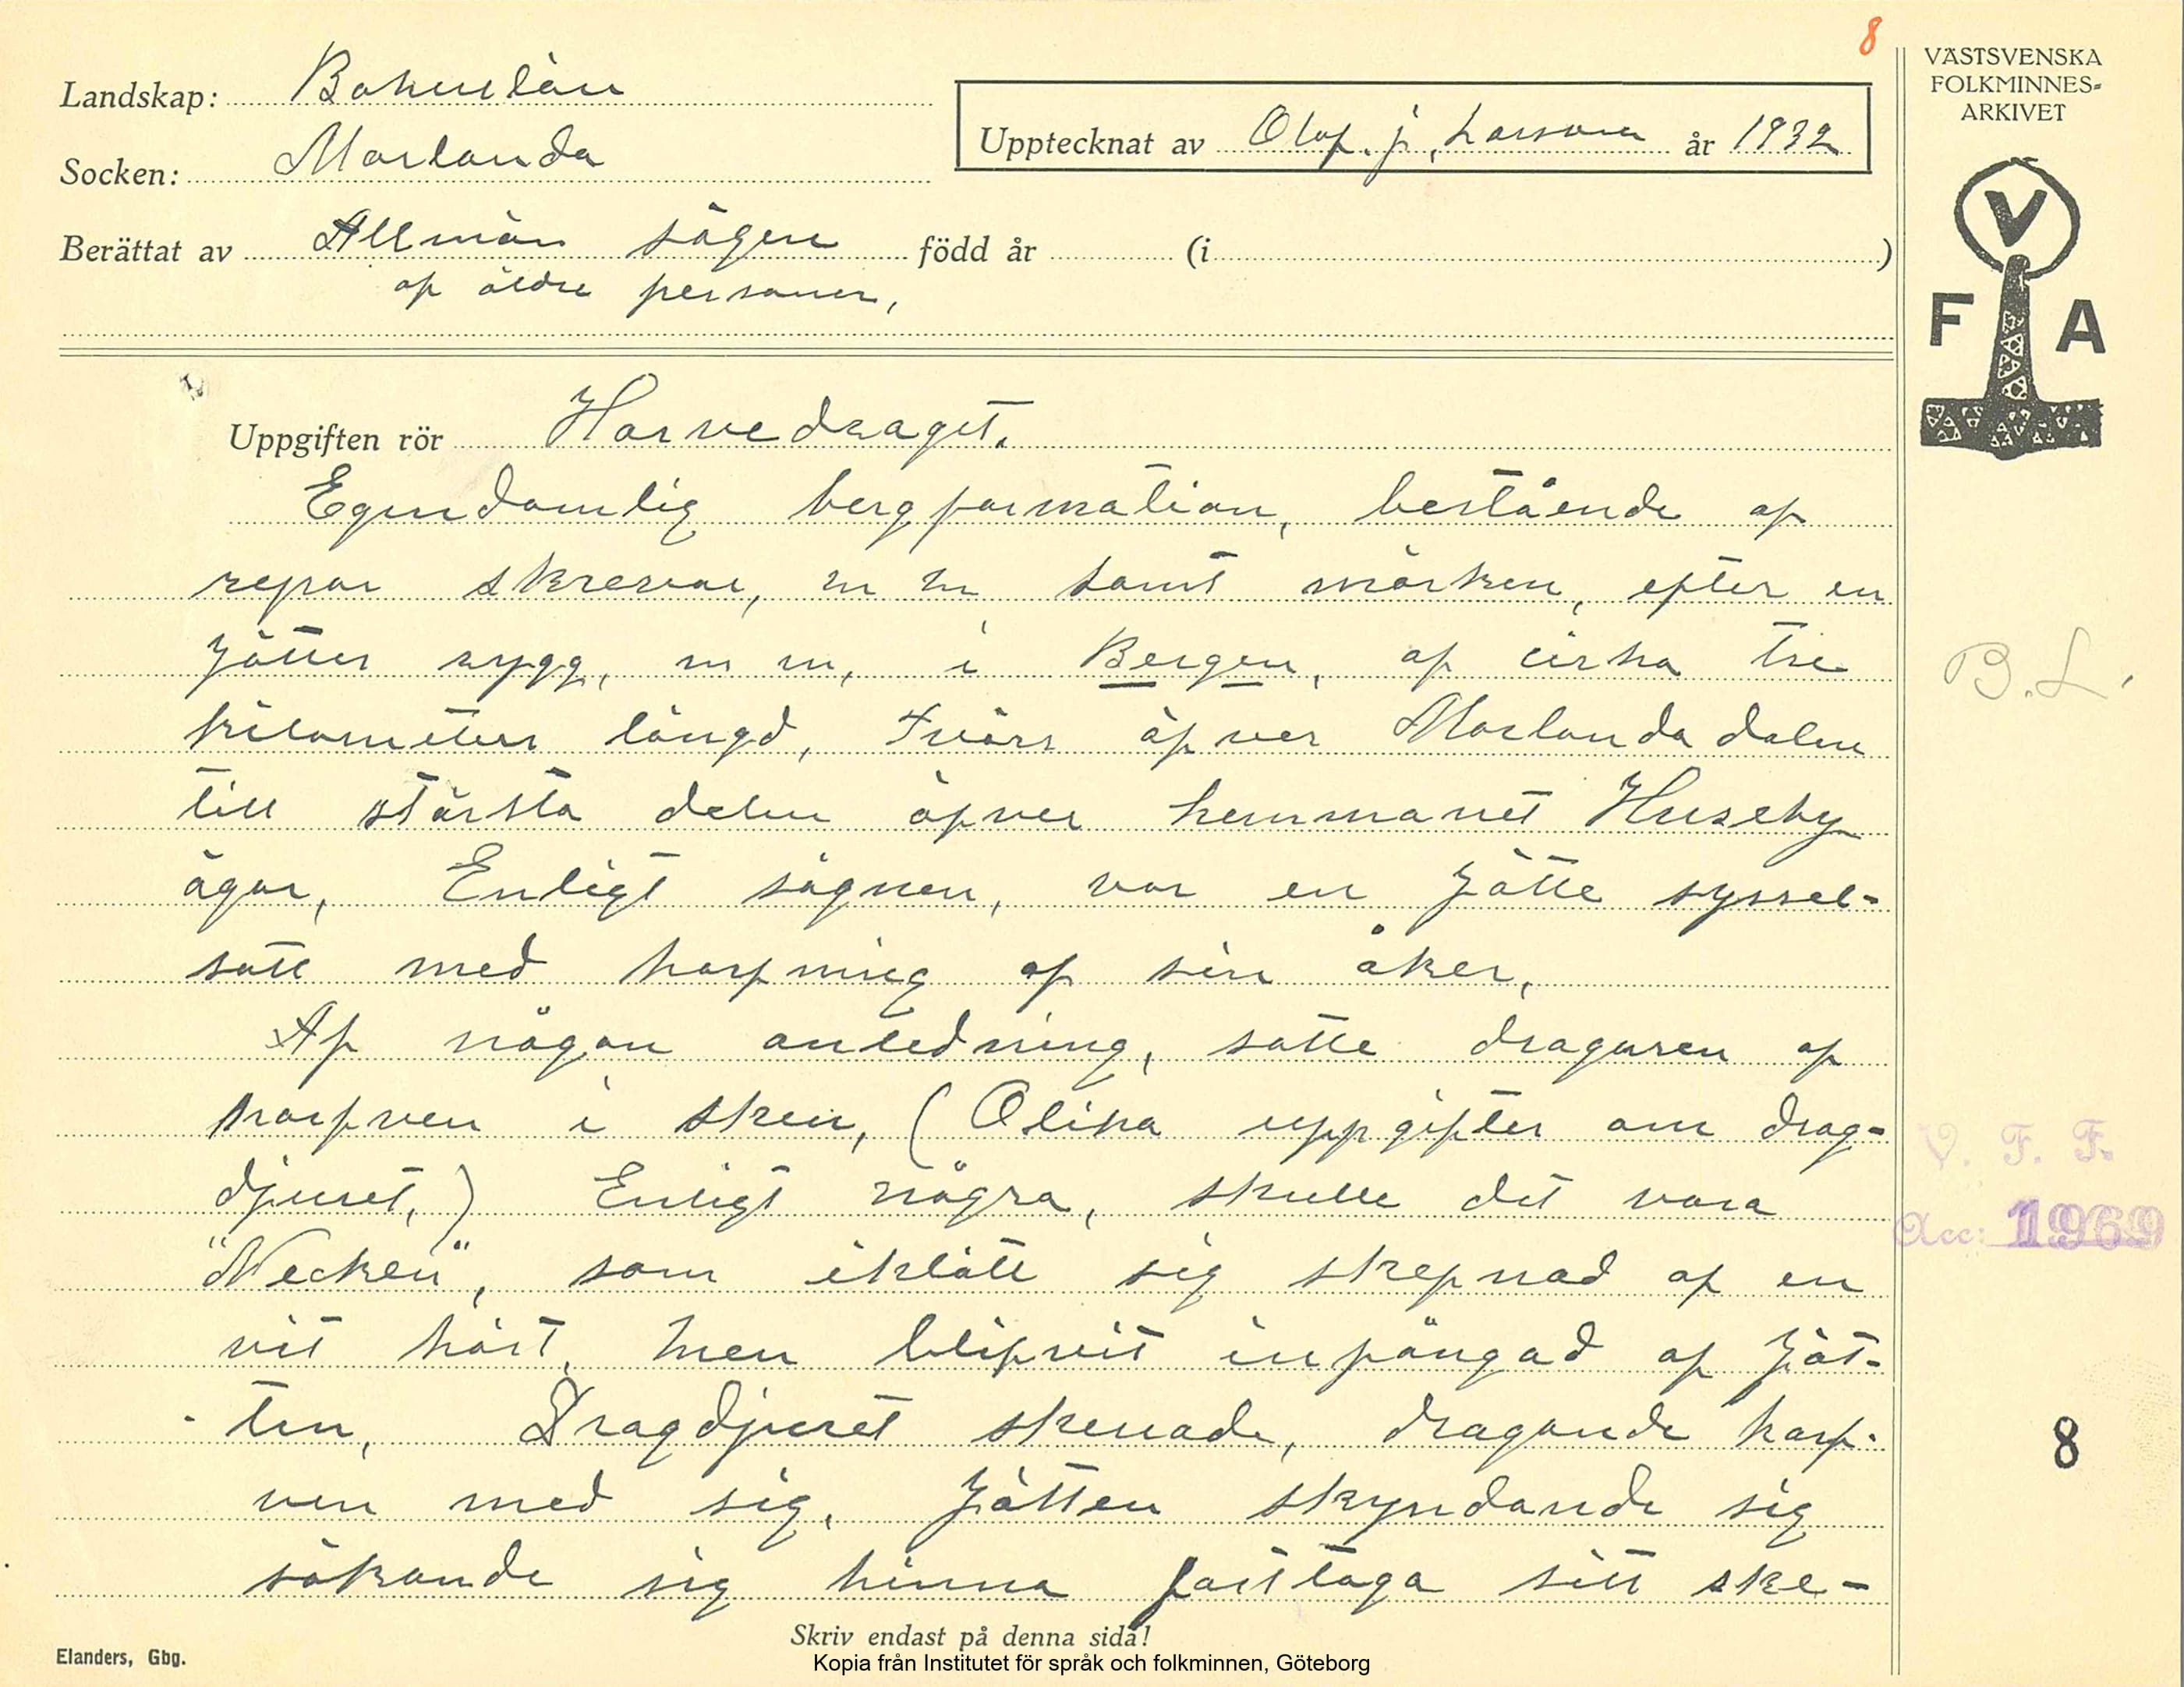 8
Landskap: Bohuslän
Socken: Morlanda
Upptecknat av Olof. j. Larsson år 1932
Berättat av Allmän sägen född år (i )
af äldre personer,
VÄSTSVENSKA
FOLKMINNES-
ARKIVET
V
F A
Uppgiften rör Harvedraget.
Egendomlig bergformation, bestående af
repor skrevor, m m samt märken, efter en
Jättes rygg, m m, i Bergen, af cirka tre
kilometers längd, tvärs öfver Morlanda dalen
till största delen öfver hemmanet Huseby
ägor, Enligt sägnen, var en Jätte syssel-
satt med harfning af sin åker,
Af någon anledning, satte dragaren af
harfven i sken, (Olika uppgifter om drag-
djuret,) Enligt några, skulle det vara
"Necken", som iklätt sig skepnad af en
vit häst, men blifvit infångad af Jät-
ten, Dragdjuret skenade, dragande harf-
ven med sig, Jätten skyndande sig
sökande sig hinna fasttaga sitt ske-
B.L.
V. F. F.
Acc: 1969
8
Skriv endast på denna sida!
Elanders, Gbg.
Kopia från Institutet för språk och folkminnen, Göteborg